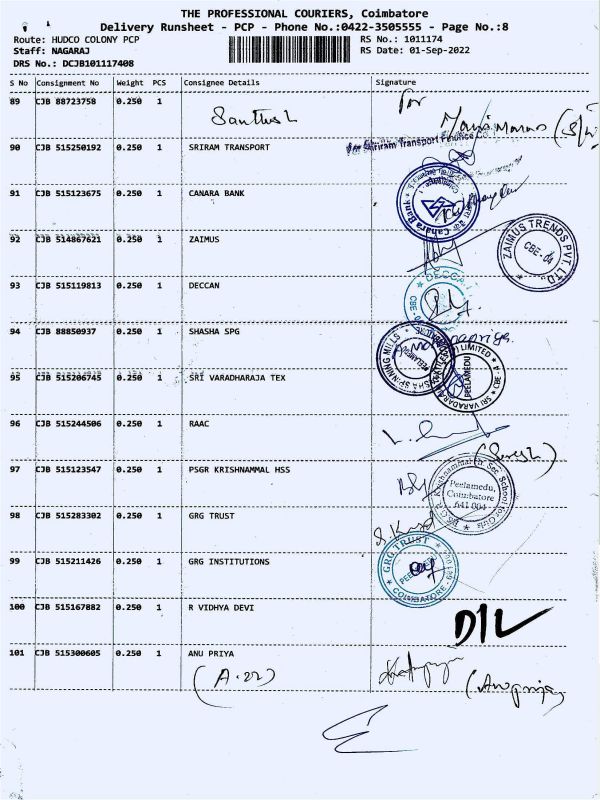 THE PROFESSIONAL COURIERS, Coimbatore
Delivery Runsheet - PCP - Phone No.:0422-3505555 - Page No.:8
Route: HUDCO COLONY PCP RS No.: 1011174
Staff: NAGARAJ RS Date: 01-Sep-2022
DRS No.: DCJB101117408
S No Consignment No Weight PCS Consignee Details Signature
89 CJB 88723758 0.250 1 Santhosh For
90 CJB 515250192 0.250 1 SRIRAM TRANSPORT For Shriram Transport Finance Co.
91 CJB 515123675 0.250 1 CANARA BANK Canara Bank
92 CJB 514867621 0.250 1 ZAIMUS ZAIMUS TRENDS PVT. LTD. CBE-04
93 CJB 515119813 0.250 1 DECCAN DECCAN
94 CJB 88850937 0.250 1 SHASHA SPG SHASHA SPINNING MILLS PEELAMEDU
95 CJB 515206745 0.250 1 SRI VARADHARAJA TEX SRI VARADARAJA LIMITED PEELAMEDU CBE
96 CJB 515244506 0.250 1 RAAC (Suresh)
97 CJB 515123547 0.250 1 PSGR KRISHNAMMAL HSS Krishnammal Hr. Sec. School for Girls Peelamedu, Coimbatore 641 004
98 CJB 515283302 0.250 1 GRG TRUST
99 CJB 515211426 0.250 1 GRG INSTITUTIONS GRG TRUST PEELAMEDU COIMBATORE
100 CJB 515167882 0.250 1 R VIDHYA DEVI
101 CJB 515300605 0.250 1 ANU PRIYA
(A.22) (Anupriya)